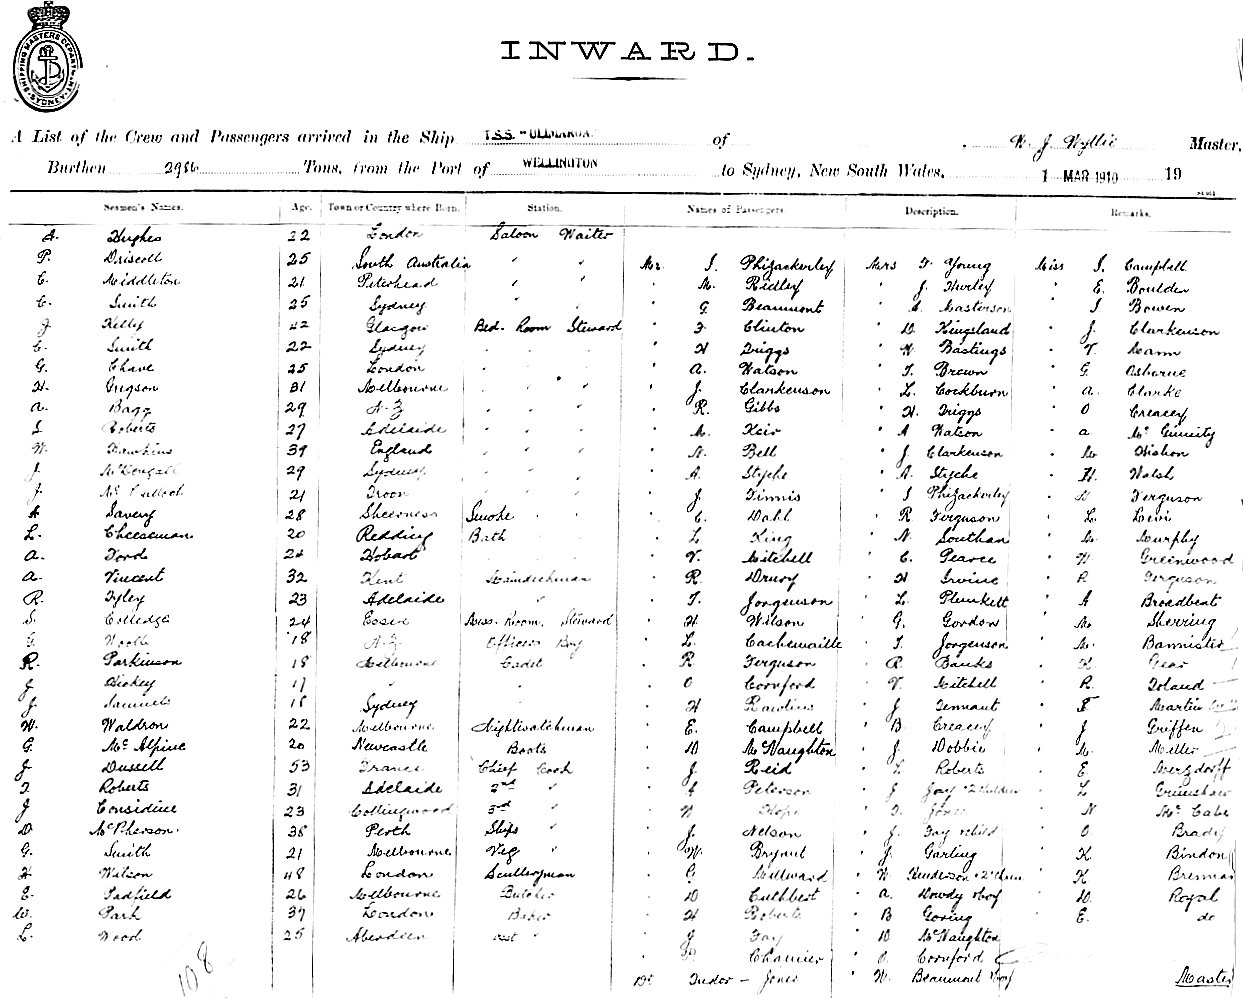 SHIPPING MASTERS DEPARTMENT SYDNEY
INWARD.
A List of the Crew and Passengers arrived in the Ship T.S.S. "ULIMAROA. of W. J. Wyllie Master,
Burthen Tons, from the Port of WELLINGTON to Sydney, New South Wales, 1 MAR 1910 19
Seamen's Names. Age. Town or Country where Born. Station. Names of Passengers. Description. Remarks.
A. Hughes 22 London Saloon Waiter
P. Driscoll 25 South Australia " " Mr. I. Phizackerley Mrs F. Young Miss I. Campbell
C. Middleton 21 Peterhead " " " M. Ridley " J. Hurley " E. Boulden
C. Smith 25 Sydney " " " G Beaumont " Masterson " I Bowen
J. Kelly 42 Glasgow Bed Room Steward " F. Clinton " D. Kingsland " J. Clarkenson
C. Smith 22 Sydney " " " " H Triggs " W. Bastings " V. Mann
G. Chave 25 London " " " " A. Watson " T. Brown " G. Osborne
H. Gregson 31 Melbourne " " " " J. Clarkenson " L. Cockburn " A. Clarke
A. Bagg 29 N.Z " " " " R. Gibbs " H. Triggs " O Creacey
S. Roberts 27 Adelaide " " " " M. Keir " A Watson " A
W. Hawkins 39 England " " " " A. Bell " J. Clarkenson "
J. McDougall 29 Sydney " " " " A. Styche " A. Styche " H. Walsh
J. McCulloch 21 Troon " " " " J. Finnis " I Phizackerley " Ferguson
A Savery 28 Sheerness Smoke " " " C. Dahl " R. Ferguson " L. Levi
L. Cheeseman 20 Redding Bath " " " L King " N. Southan " M. Murphy
A. Ford 24 Hobart " " " V. Mitchell " C. Pearce " W Greenwood
A. Vincent 32 Kent " R. Drury " H Irvine " R Ferguson
R. Tyley 23 Adelaide " " T. Jorgenson " L. Plunkett " A Broadbent
S. Colledge 24 Essex Mess Room Steward " H Wilson " G. Gordon " M. Sherring
G. 18 N.Z Officers Boy " L. Cachemaille " T. Jorgenson " M. Bannister
R. Parkinson 18 Melbourne Cadet " R Ferguson " R. Banks " K. Gear
J Hickey 17 " " " O Cornford " V. Mitchell " R. Toland
J. Samuels 18 Sydney " " H Rawlins " J Tennant " Martin
W. Waldron 22 Melbourne Nightwatchman " E. Campbell " B. Creacey " J Griffen
G. McAlpine 20 Newcastle Boots " D McNaughton " J. Dobbie " M. Miller
J Dussell 53 France Chief Cook " J. Reid " L Roberts " E. Mergdorff
F Roberts 31 Adelaide 2nd " " Peterson " J Jay + 2 children " L Grimshaw
J Considine 23 Collingwood 3rd " " W Hope " F. Jones " N McCabe
D McPherson. 38 Perth Ships " " J. Nelson " J. Fay + child " O Brady
G. Smith 21 Melbourne Veg " " W. Brynut " J. Garling " K. Bindon
H Watson 48 London Sculleryman " G. Millward " W. Henderson + 2 Chdn " K Brennan
E. Padfield 26 Melbourne Butcher " D Cuthbert " A. Dowdy + of " D. Royal
W. Park 37 London Baker " H Roberts " B Goring " E. do
L. Wood 25 Aberdeen asst " " J Fay " D McNaughton
" Chamier " O. Cornford
108 Dr Tudor - Jones " W. Beaumont + of Master